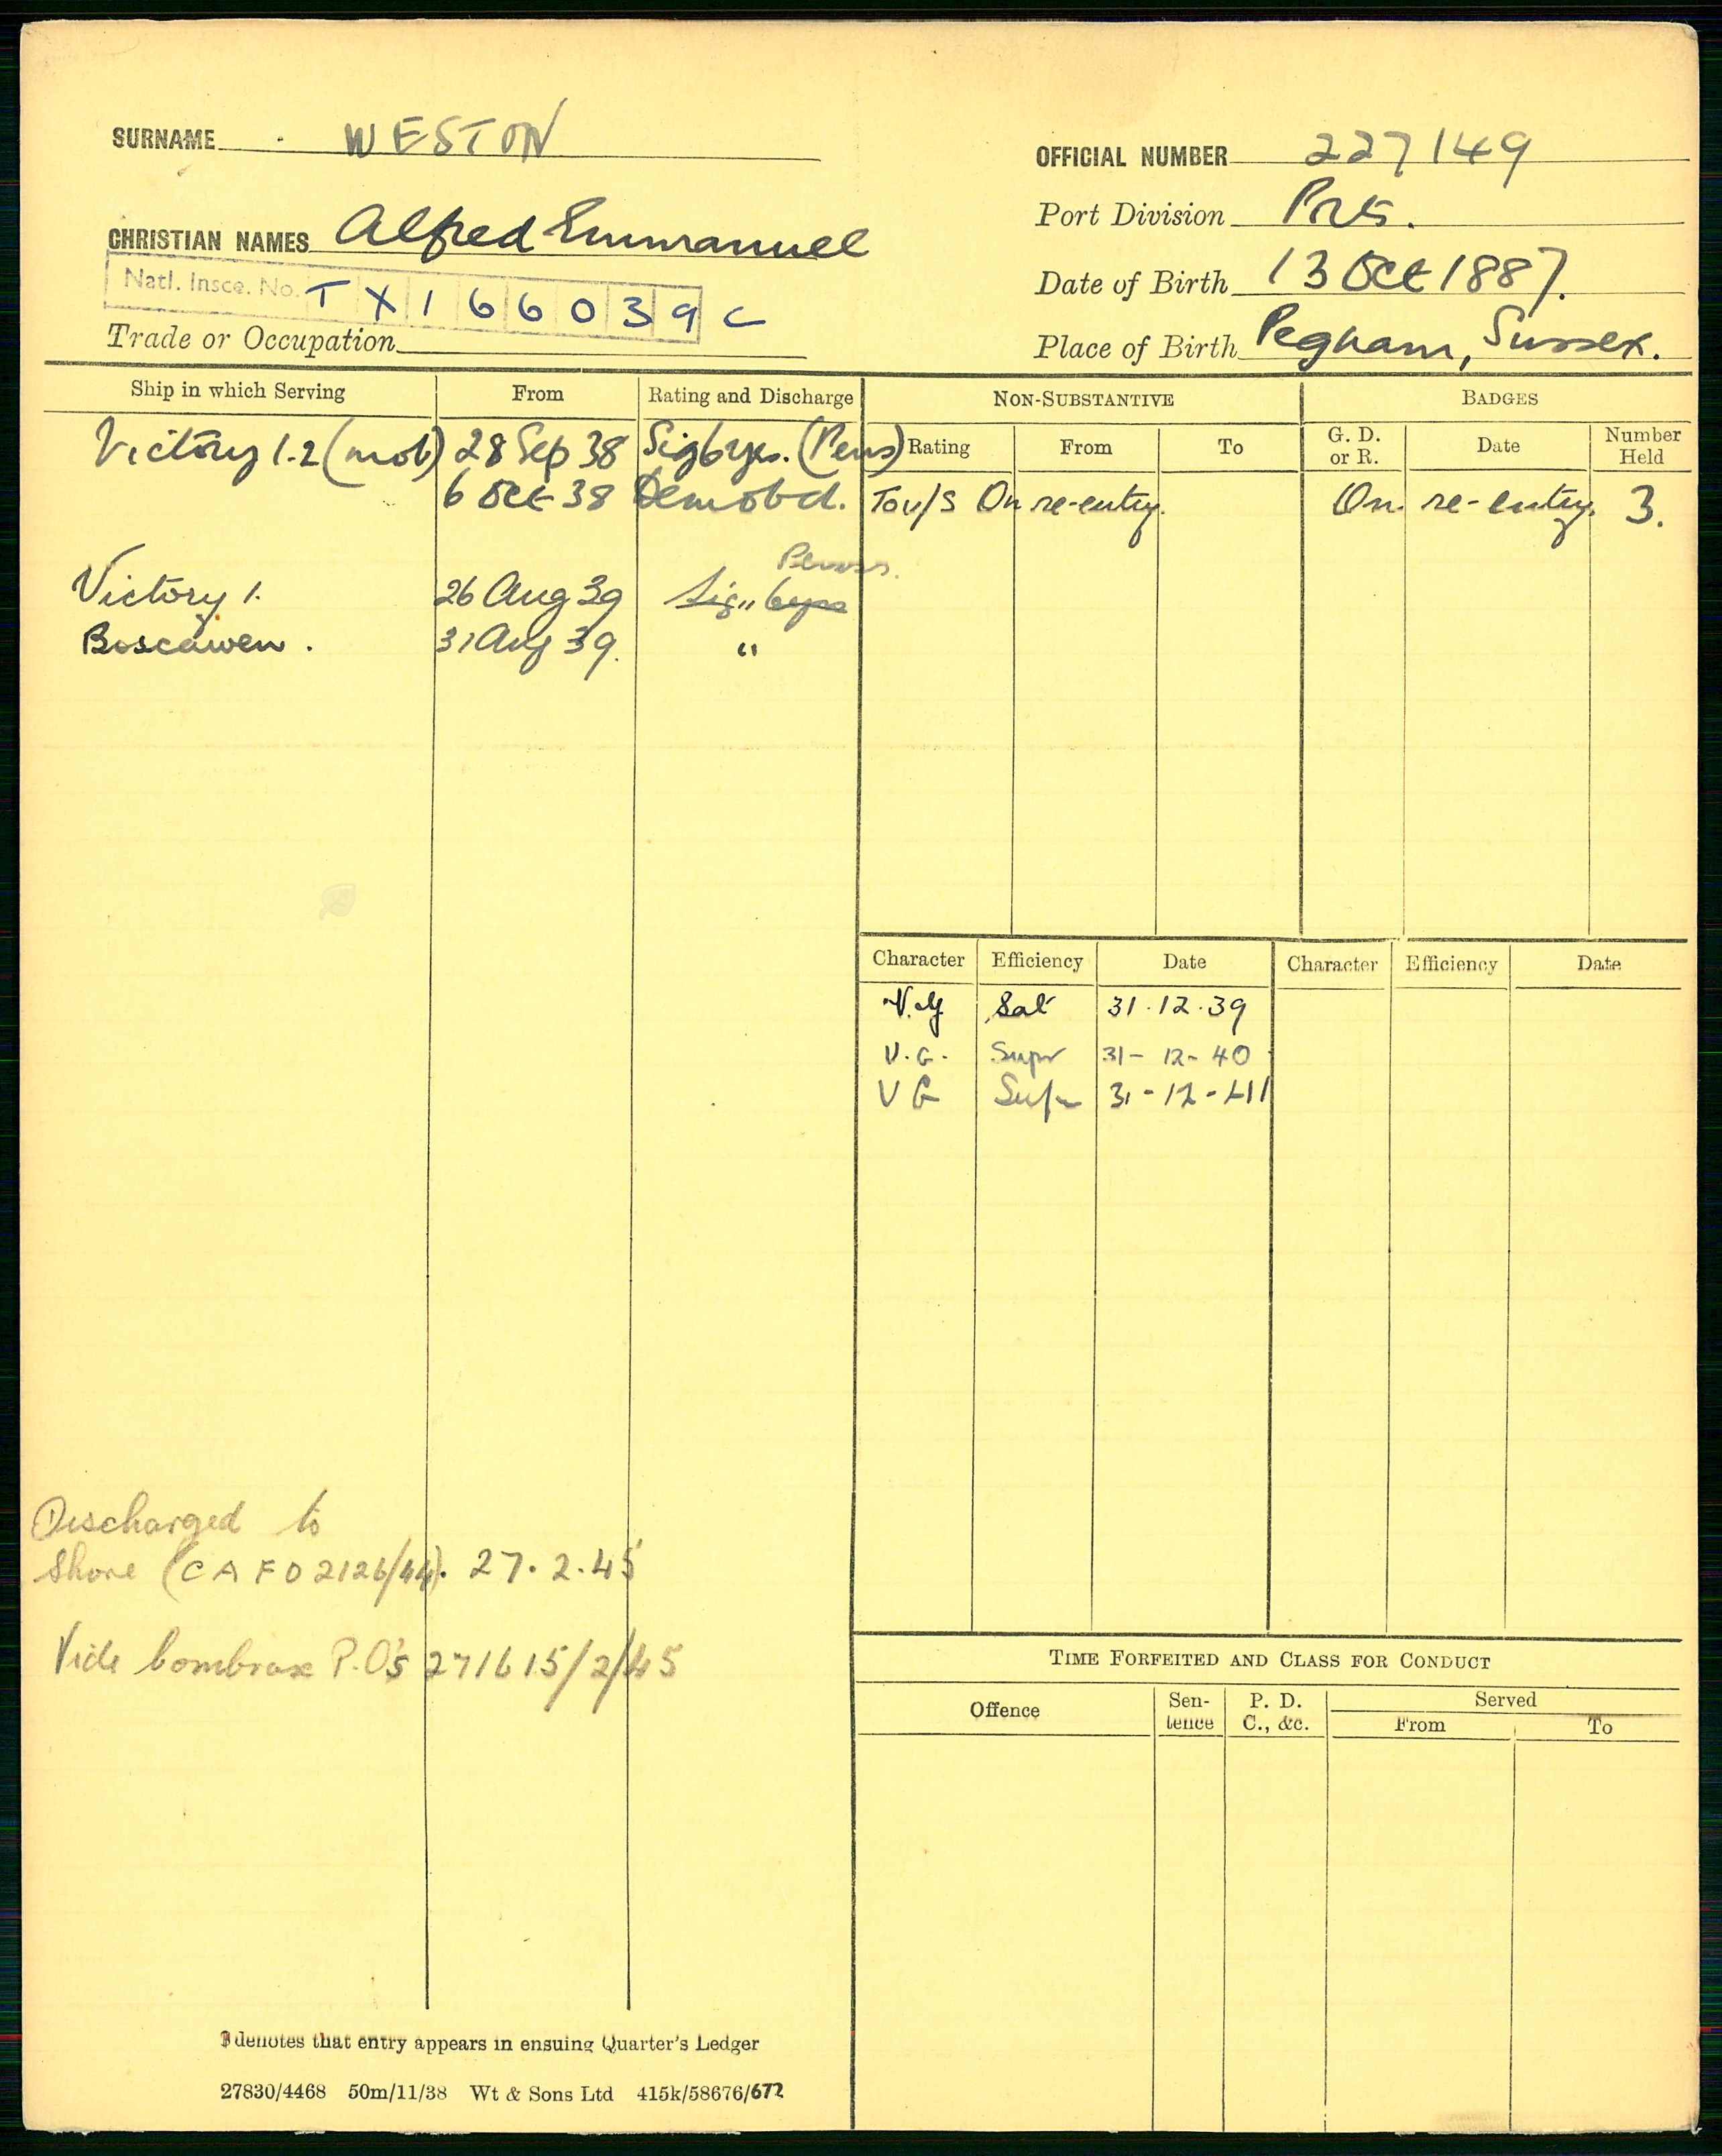 SURNAME WESTON
OFFICIAL NUMBER 227149
Port Division Prts.
CHRISTIAN NAMES Alfred Emmanuel
Date of Birth 13 Oct 1887.
Natl. Insce. No. T X 1 6 6 0 3 9 C
Trade or Occupation
Place of Birth Pegham, Sussex.
Ship in which Serving From Rating and Discharge
Victory 1.2 (mob) 28 Sep 38 Sig byr. (Pens)
6 Oct 38 Demobd.
Victory 1. 26 Aug 39
Pensr.
Boscawen. 31 Aug 39. "
NON-SUBSTANTIVE
Rating From To
To v/s On re-entry.
BADGES
G. D. or R. Date Number Held
On re-entry. 3.
Character Efficiency Date Character Efficiency Date
V.G Sat 31.12.39
V.G. Supr 31-12-40
V G Supr 31-12-41
Discharged to
Shore (CAFO 2126/44). 27.2.45
Vide Combrax P.O's 271615/2/45
TIME FORFEITED AND CLASS FOR CONDUCT
Offence Sen-tence P. D. C., &c. Served
From To
denotes that entry appears in ensuing Quarter's Ledger
27830/4468 50m/11/38 Wt & Sons Ltd 415k/58676/672